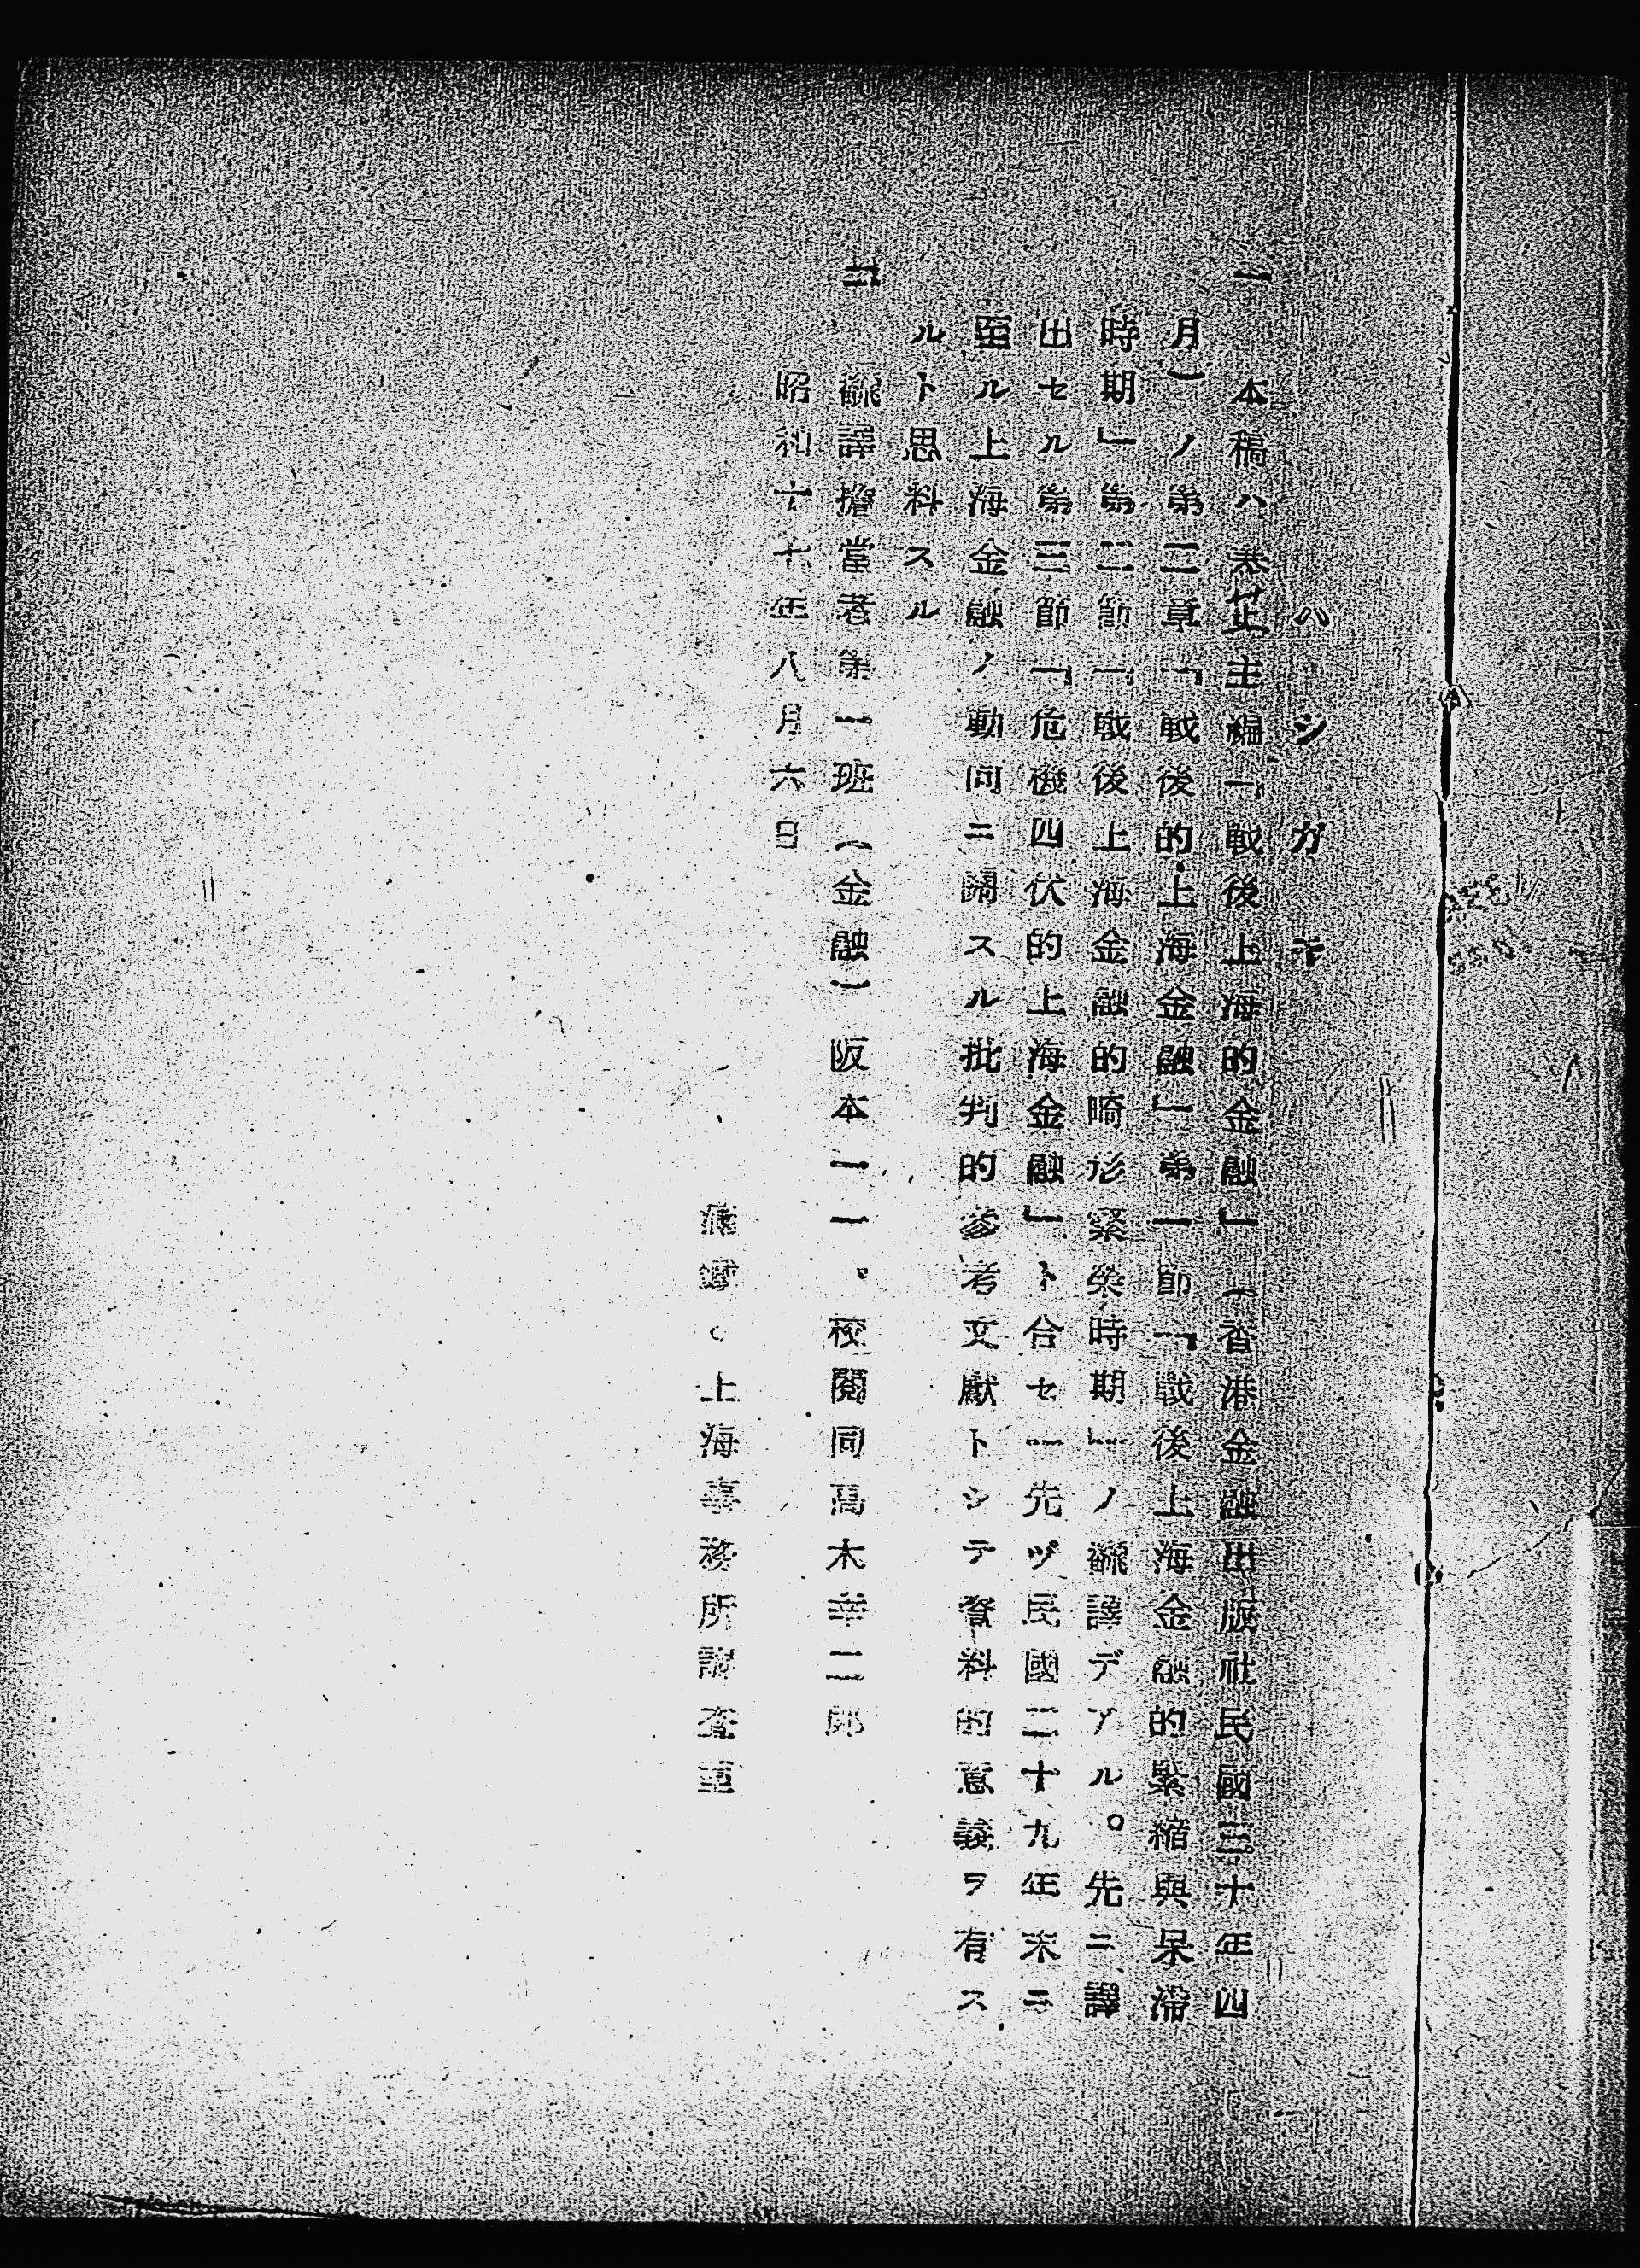 ハシガキ
一 本稿ハ 芷主編「戰後上海的金融」（香港金融出版社民國三十年四
月）ノ第二章「戰後的上海金融」第一節「戰後上海金融的緊縮與呆滯
時期」第二節「戰後上海金融的畸形緊榮時期」ノ飜譯デアル。先ニ譯
出セル第三節「危機四伏的上海金融」ト合セ一先ヅ民國二十九年末ニ
至ル上海金融ノ動向ニ關スル批判的參考文獻トシテ資料的意義ヲ有ス
ルト思料スル
二 飜譯擔當者第一班（金融）阪本一一。校閲同高木幸二郎
昭和十七年八月六日
滿鐵、上海事務所調査室